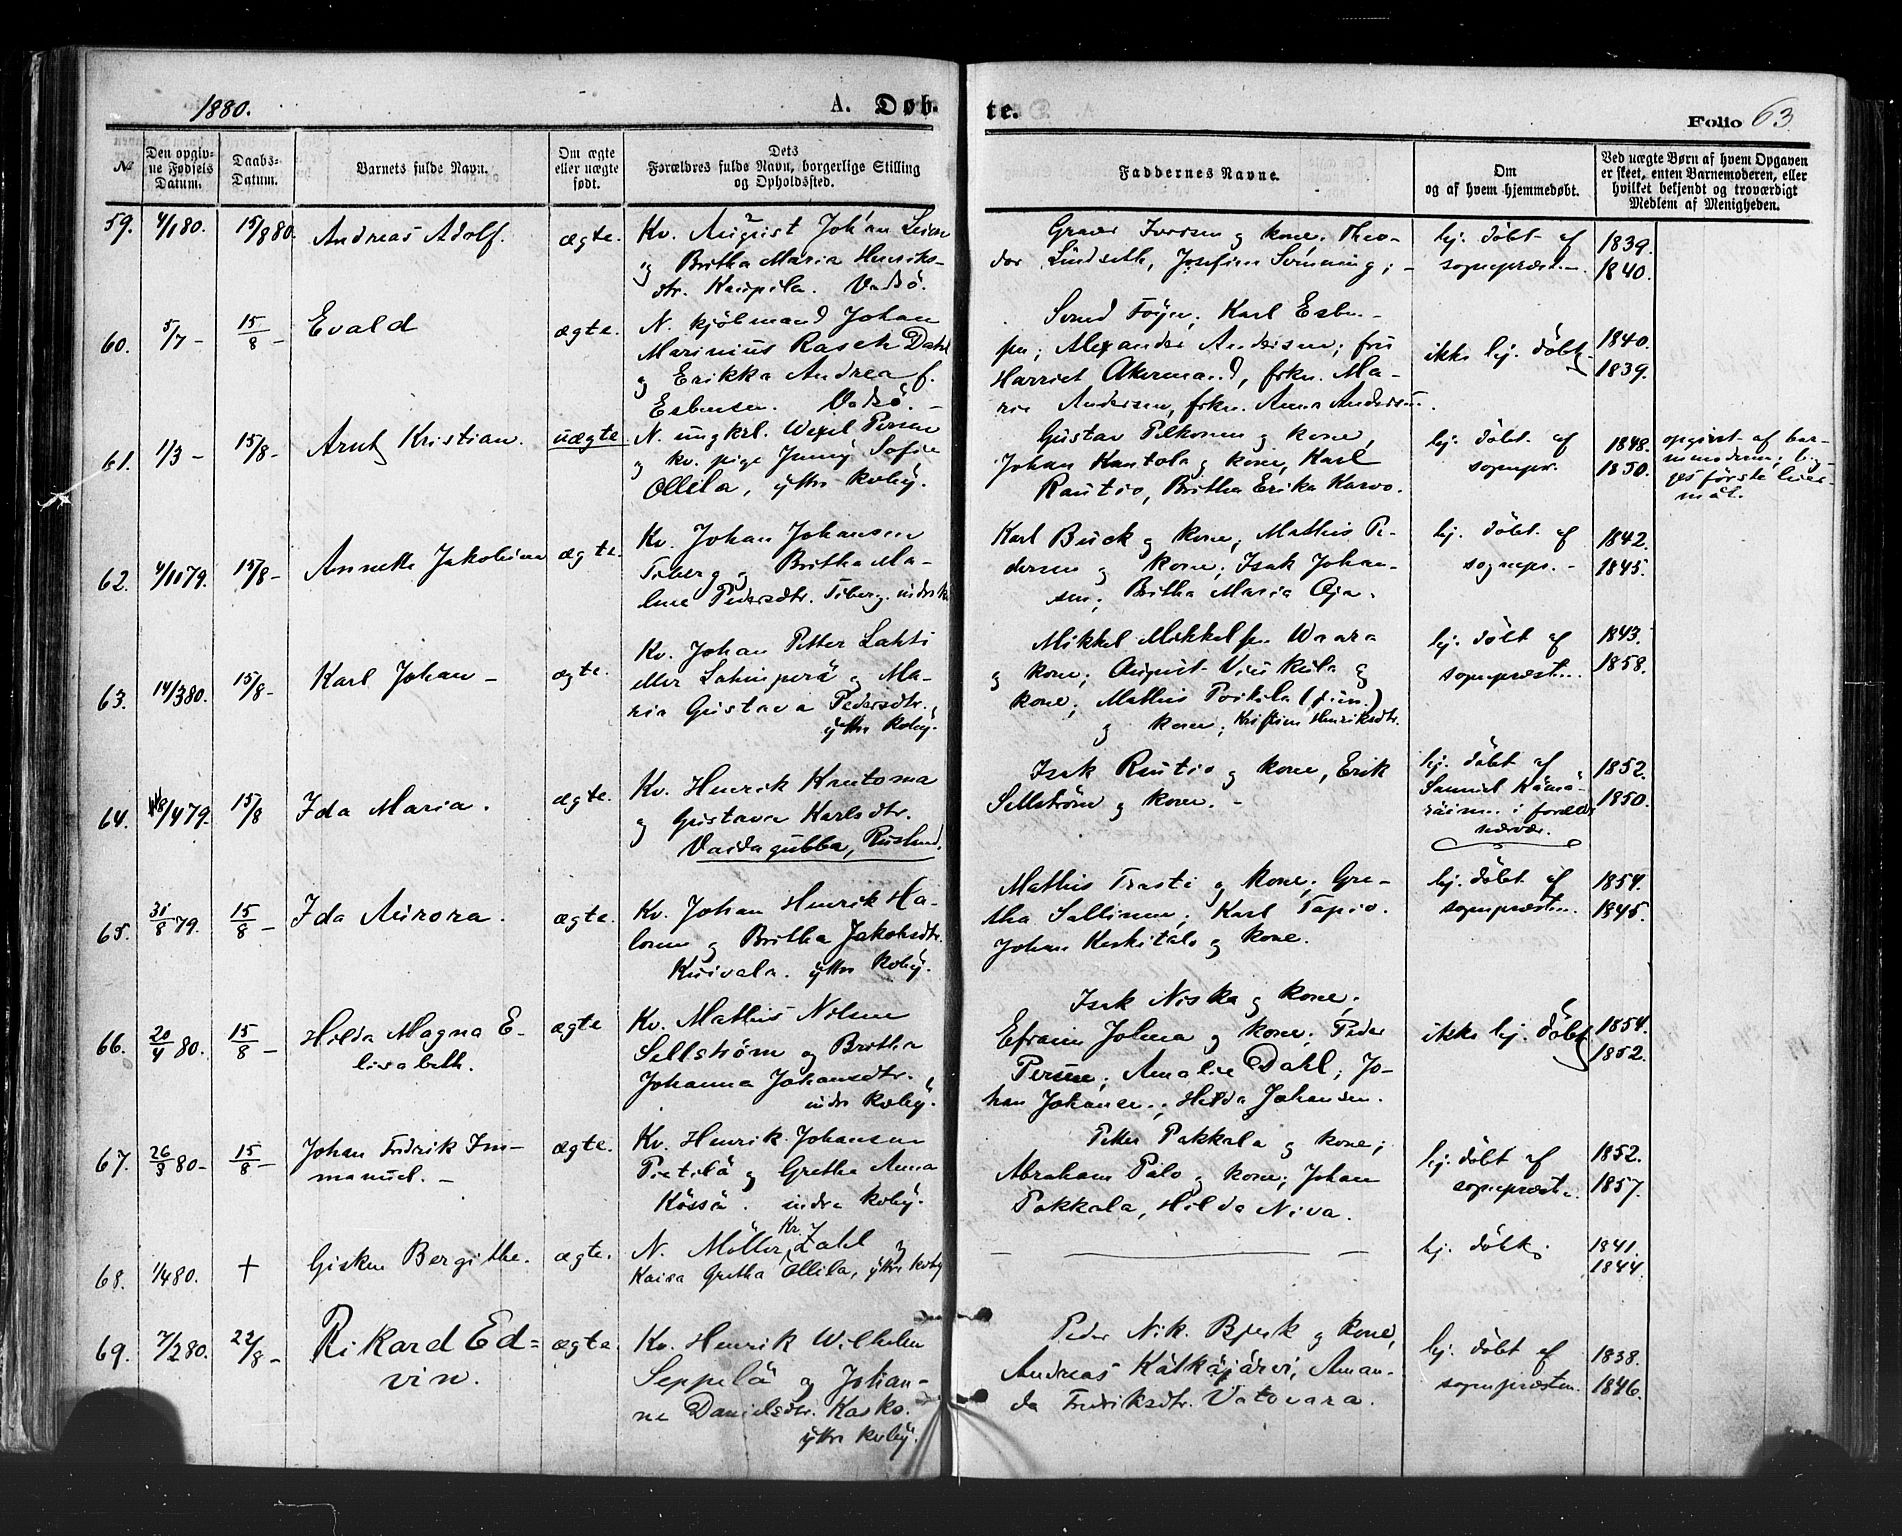 1880.
A. Døb-
te.
Folio 63
№
Den opgiv-
ne Fødsels
Datum.
Daabs-
Datum.
Barnets fulde Navn.
Om ægte
eller uægte
født.
Dets
Forældres fulde Navn, borgerlige Stilling
og Opholdssted.
Faddernes Navne.
Om
og af hvem hjemmedøbt.
Ved uægte Børn af hvem Opgaven
er skeet, enten Barnemoderen, eller
hvilket bekjendt og troværdigt
Medlem af Menigheden.
59. 4/180. 15/880. Andreas Adolf. ægte.
Kv. August Johan
og Britha Maria Henriks-
dtr. Kaupila. Vadsö.
kone. Theo-
dor Lindseth, Josefine
hj. döbt af
sognepræsten.
1839.
1840.
60. 5/7 - 15/8 - Evald ægte.
N. kjöbmand Johan
Marinius Rasch Dahl
og Erikka Andrea f.
Esbensen. Vadsö. -
Svend Föyn, Karl Esben-
sen; Alexander Andersen; fru
Harriet Akermand, frkn. Ma-
rie Andersen, frkn. Anna Andersen.
ikke hj. döbt
1840.
1839.
61. 1/3 - 15/8 - Arnt Kristian. uægte
N. ungkrl. Wexel Persen
og kv. pige Jenny Sofie
Ollila, yttre kvby.
Gustav Pelkonen og kone,
Johan Kantola og kone, Karl
Rautio, Britha Erika Karvo.
hj. döbt af
sognepr.
1848.
1850.
opgivet af bar-
nemoderen; beg-
ges förste leier-
mål.
62. 4/1079. 15/8 - Annette Jakobine ægte.
Kv. Johan Johansen
Tiberg og Britha Ma-
lene Pedersdtr. Tiberg. indre kv
Karl Buck og kone; Mathis Pe-
dersen og kone; Isak Johan-
sen; Britha Maria Oja.
hj. döbt af
sognepr. -
1842.
1845.
63. 14/380. 15/8 - Karl Johan - ægte.
Kv. Johan Petter Lahti
eller Lahenperä og Ma-
ria Gustava Pedersdtr.,
yttre kvby.
Mikkel Mikkelsen Waara
og kone; August Viinikala og
kone; Mathis Poikela (jun.)
og kone; Kristine Henriksdtr.
hj. döbt af
sognepræsten.
1843.
1858.
64. 18/479. 15/8 Ida Maria. ægte.
Kv. Henrik Knutoma
og Gustava Karlsdtr.
Vaidagubba, Rusland.
Isak Rautio og kone, Erik
Sellström og kone. -
hj. döbt af
Samuel Kämä-
räinen i foreldr
nærvær.
1852.
1850.
65. 31/879. 15/8 - Ida Aurora. ægte.
Kv. Johan Henrik Ha-
lonen og Britha Jakobsdtr.
Kuivala. yttre kvby.
Mathis Trasti og kone; Gre-
tha Sallinen; Karl Tapio.
Johan Keskitalo og kone.
hj. döbt af
sognepræsten.
1854.
1845.
66. 20/4 80. 15/8 - Hilda Magna E-
lisabeth.
ægte
Kv. Mathis Nilsen
Sellström og Britha
Johanna Johansdtr.,
indre kvby.
Isak Niska og kone;
Efraim Jolma og kone; Peder
Persen; Amalie Dahl; Jo-
han Johansen; Hilda Johansen.
ikke hj. döbt
1854.
1852.
67. 26/3 80- 15/8 - Johan Fredrik Im-
manuel. -
ægte.
Kv. Henrik Johansen
Pietilä og Gretha Anna
Kössä. indre kvby.
Petter Pakkala og kone;
Abraham Palo og kone; Johan
Pakkala, Hilda Niva.
hj. döbt af
sognepræsten.
1852.
1857.
68. 1/480. + Gisken Bergithe. ægte.
N. Möller Kr. Zahl og
Kaisa Gretha Ollila, yttre kvby
- -
hj. döbt.
1841.
1844.
69. 7/280. 22/8 - Rikard Ed-
vin.
ægte.
Kv. Henrik Wilhelm
Seppelä og Johan-
ne Danielsdtr. Kasko.
yttre kvby.
Peder Nik. Bjerk og kone,
Andreas Kätkäjärvi, Aman-
da Fredriksdtr. Vatovara.
hj. döbt af
sognepræsten.
1838.
1846.